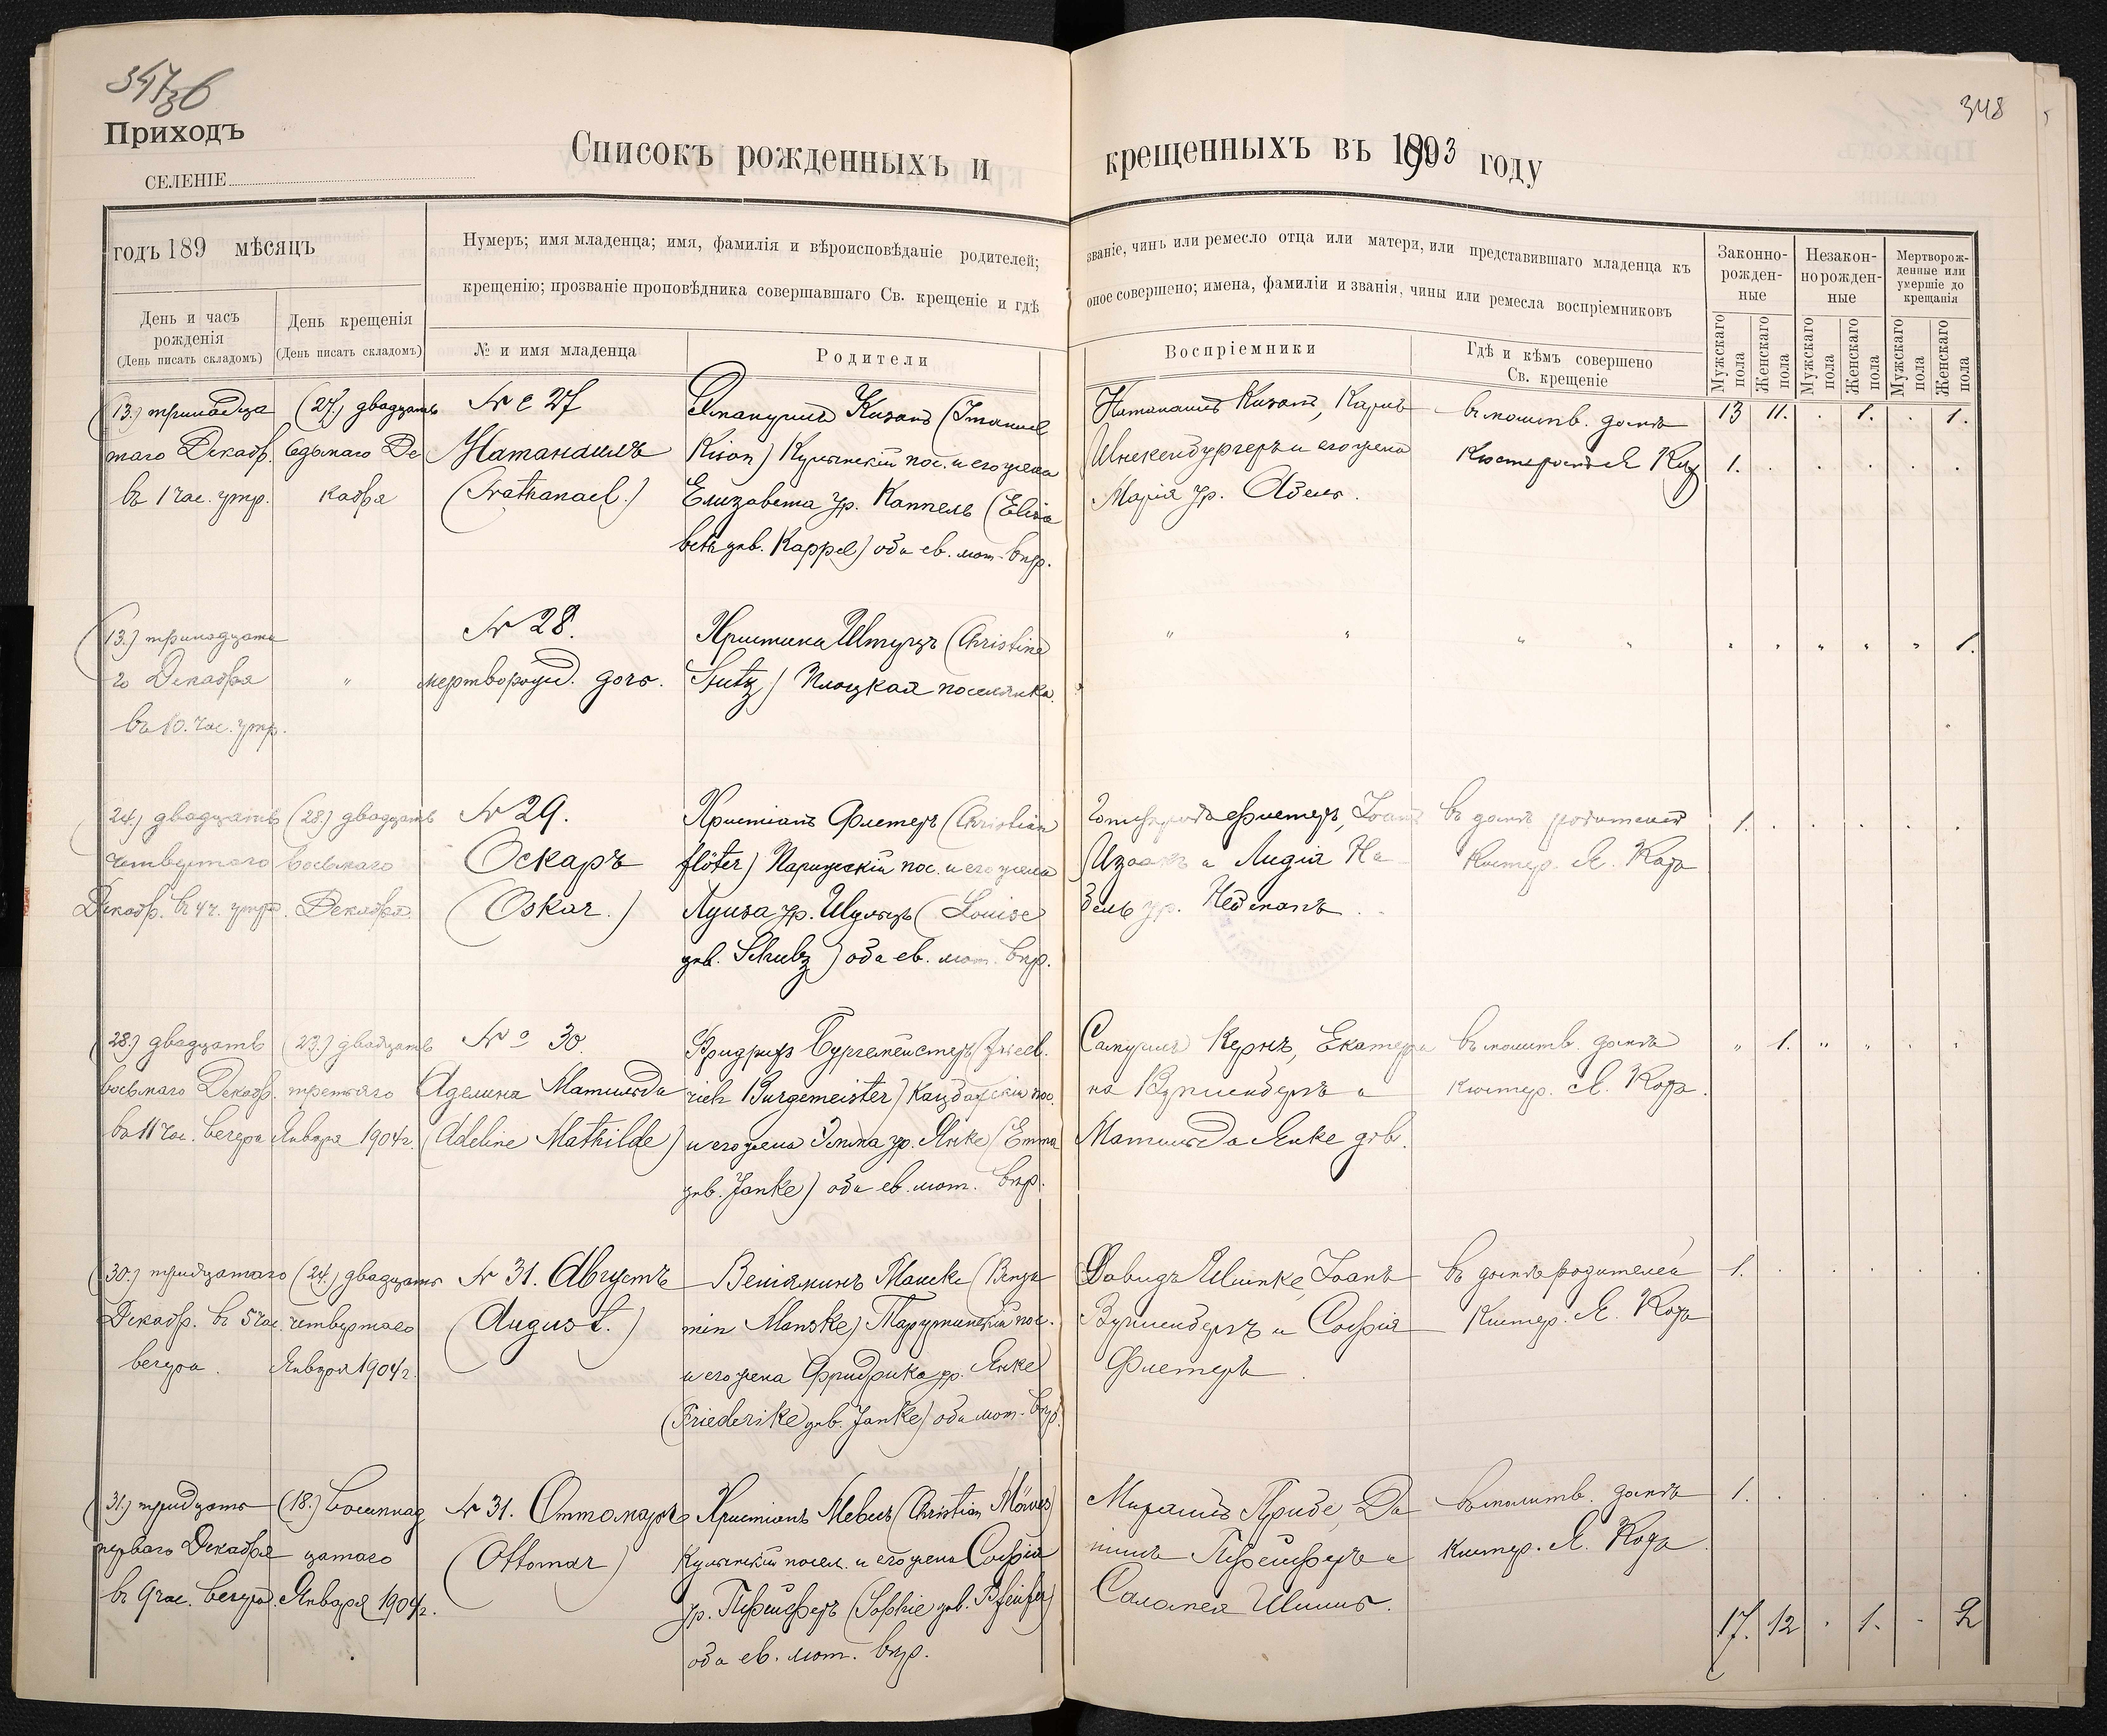 Приходъ
СЕЛЕНІЕ
Списокъ рожденныхъ и крещенныхъ въ 1903 году
348
годъ 189 мѣсяцъ
Нумеръ; имя младенца; имя, фамилія и вѣроисповѣданіе родителей; званіе, чинъ или ремесло отца или матери, или представившаго младенца къ
крещенію; прозваніе проповѣдника совершавшаго Св. крещеніе и гдѣ оное совершено; имена, фамиліи и званія, чины или ремесла воспріемниковъ
День и часъ рожденія
(День писать складомъ)
День крещенія
(День писать складомъ)
№ и имя младенца
Родители
Воспріемники
Гдѣ и кѣмъ совершено
Св. крещеніе
Законно-
рожден-
ные
Незакон-
норожден-
ные
Мертворож-
денные или
умершіе до
крещанія
Мужскаго пола
Женскаго пола
Мужскаго пола
Женскаго пола
Мужскаго пола
Женскаго пола
(13.) тринадца
таго Декабр.
въ 1 час. утр.
(27.) двадцать
седьмаго Де
кабря
№ 27
Натанаилъ
(Nathanael.)
Эмануилъ Кизонъ (Imanuel
Kison) Кульмскій пос. и его жена
Елизавета ур. Каппель (Elisa
beth geb. Kappel) оба ев. лют. вѣр.
Натанаилъ Кизонъ, Карлъ
Шнекенбургеръ и его жена
Марія ур.
въ молитв. домѣ
Кюстеромъ Я.
13 11. . 1. . 1.
1. . . . . .
(13.) тринадцата
го Декабря
въ 10. час. утр.
№ 28.
мертворожд. дочь.
Христина Штуцъ (Christine
Stutz) Плоцкая поселянка.
1.
(24.) двадцать
четвертаго
Декабр. въ 4 ч. утра.
(28.) двадцать
восьмаго
Декабря.
№ 29.
Оскаръ
(Oskar.)
Христіанъ Флетеръ (Christian
Flöter) Парижскій пос. и его жена
Луиза ур. Шульцъ (Louise
geb. Schulz) оба ев. лют. вѣр.
Готфридъ Флетеръ, Іоанъ
Изаакъ и Лидія На
зель ур.
въ домѣ родителей
Кюстер. Я. Кода
1. . . . . .
(28.) двадцать
восьмаго Декабр.
въ 11 час. вечера
(23.) двадцать
третьяго
Января 1904 г.
№ 30.
Аделина Матильда
(Adeline Mathilde)
Фридрихъ Бургемейстеръ (Fried.
rich Burgemeister) Кацбахскій пос.
и его жена Эмма ур. Янке (Emma
geb. Janke) оба ев. лют. вѣр.
Самуилъ Кернъ, Екатери
на Вурменбергъ и
Матильда Янке дѣв.
въ молитв. домѣ
кюстер. Я. Кода.
" 1. " " . .
(30.) тридцатаго
Декабр. въ 5 час.
вечера.
(24.) двадцать
четвертаго
Января 1904 г.
№ 31. Августъ
(August.)
Веніяминъ Манске (Benja
min Manske) Тарутинскій пос.
и его жена Фридрика ур. Янке
(Friederike geb. Janke) оба лют. вѣр.
Давидъ Шинке, Іоанъ
Вурменбергъ и Софія
Флетеръ.
въ домѣ родителей
Кюстер. Я. Кода
1. . . . . .
(31.) тридцать
перваго Декабря
въ 9 час. вечера.
(18.) восемнад
цатаго
Января 1904 г.
№ 31. Оттомаръ
(Ottomar)
Христіанъ Мевесъ (Christian Möwes)
Кульмскій посел. и его жена Софія
ур. Пфейферъ (Sophie geb. Pfeifer)
оба ев. лют. вѣр.
Михаилъ Приве, Да
ніилъ Пфейферъ и
Саломея
въ молитв. домѣ
Кюстер. Я. Кода.
1. . . . . .
17. 12 . 1. . 2